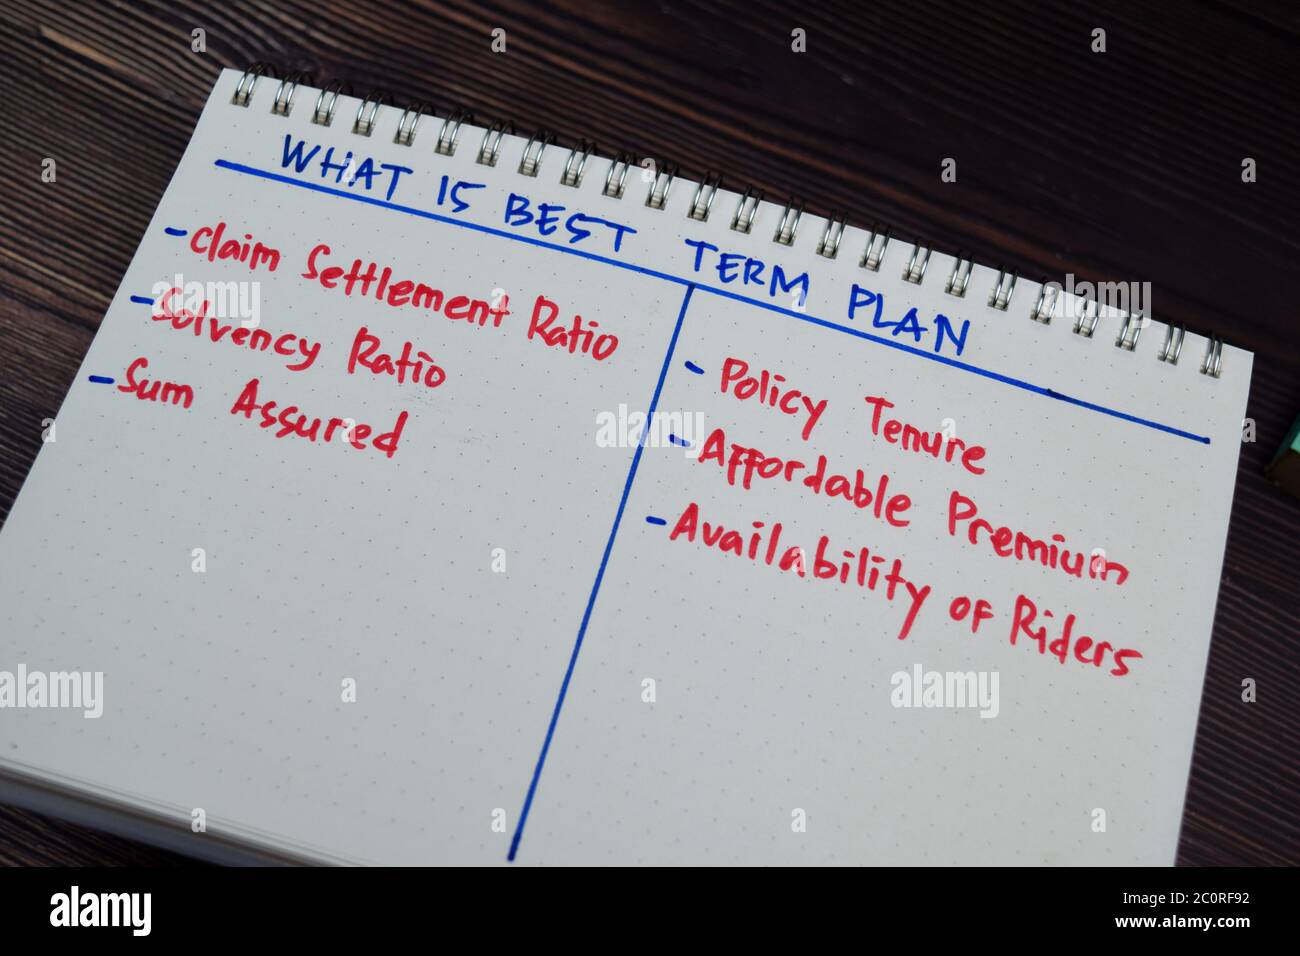 WHAT IS BEST TERM PLAN
- Claim Settlement Ratio
- Solvency Ratio
- Sum Assured
- Policy Tenure
- Affordable Premium
- Availability of Riders
alamy
Image ID: 2C0RF92
www.alamy.com